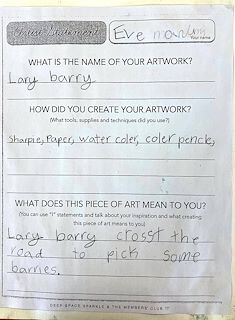 Artist Statement
Eve
Your name
WHAT IS THE NAME OF YOUR ARTWORK?
Lary barry
HOW DID YOU CREATE YOUR ARTWORK?
(What tools, supplies and techniques did you use?)
Sharpie, Paper, water coler, coler pencle,
WHAT DOES THIS PIECE OF ART MEAN TO YOU?
(You can use "I" statements and talk about your inspiration and what creating
this piece of art means to you)
Lary barry crosst the
road to pick some
barries.
DEEP SPACE SPARKLE & THE MEMBERS' CLUB